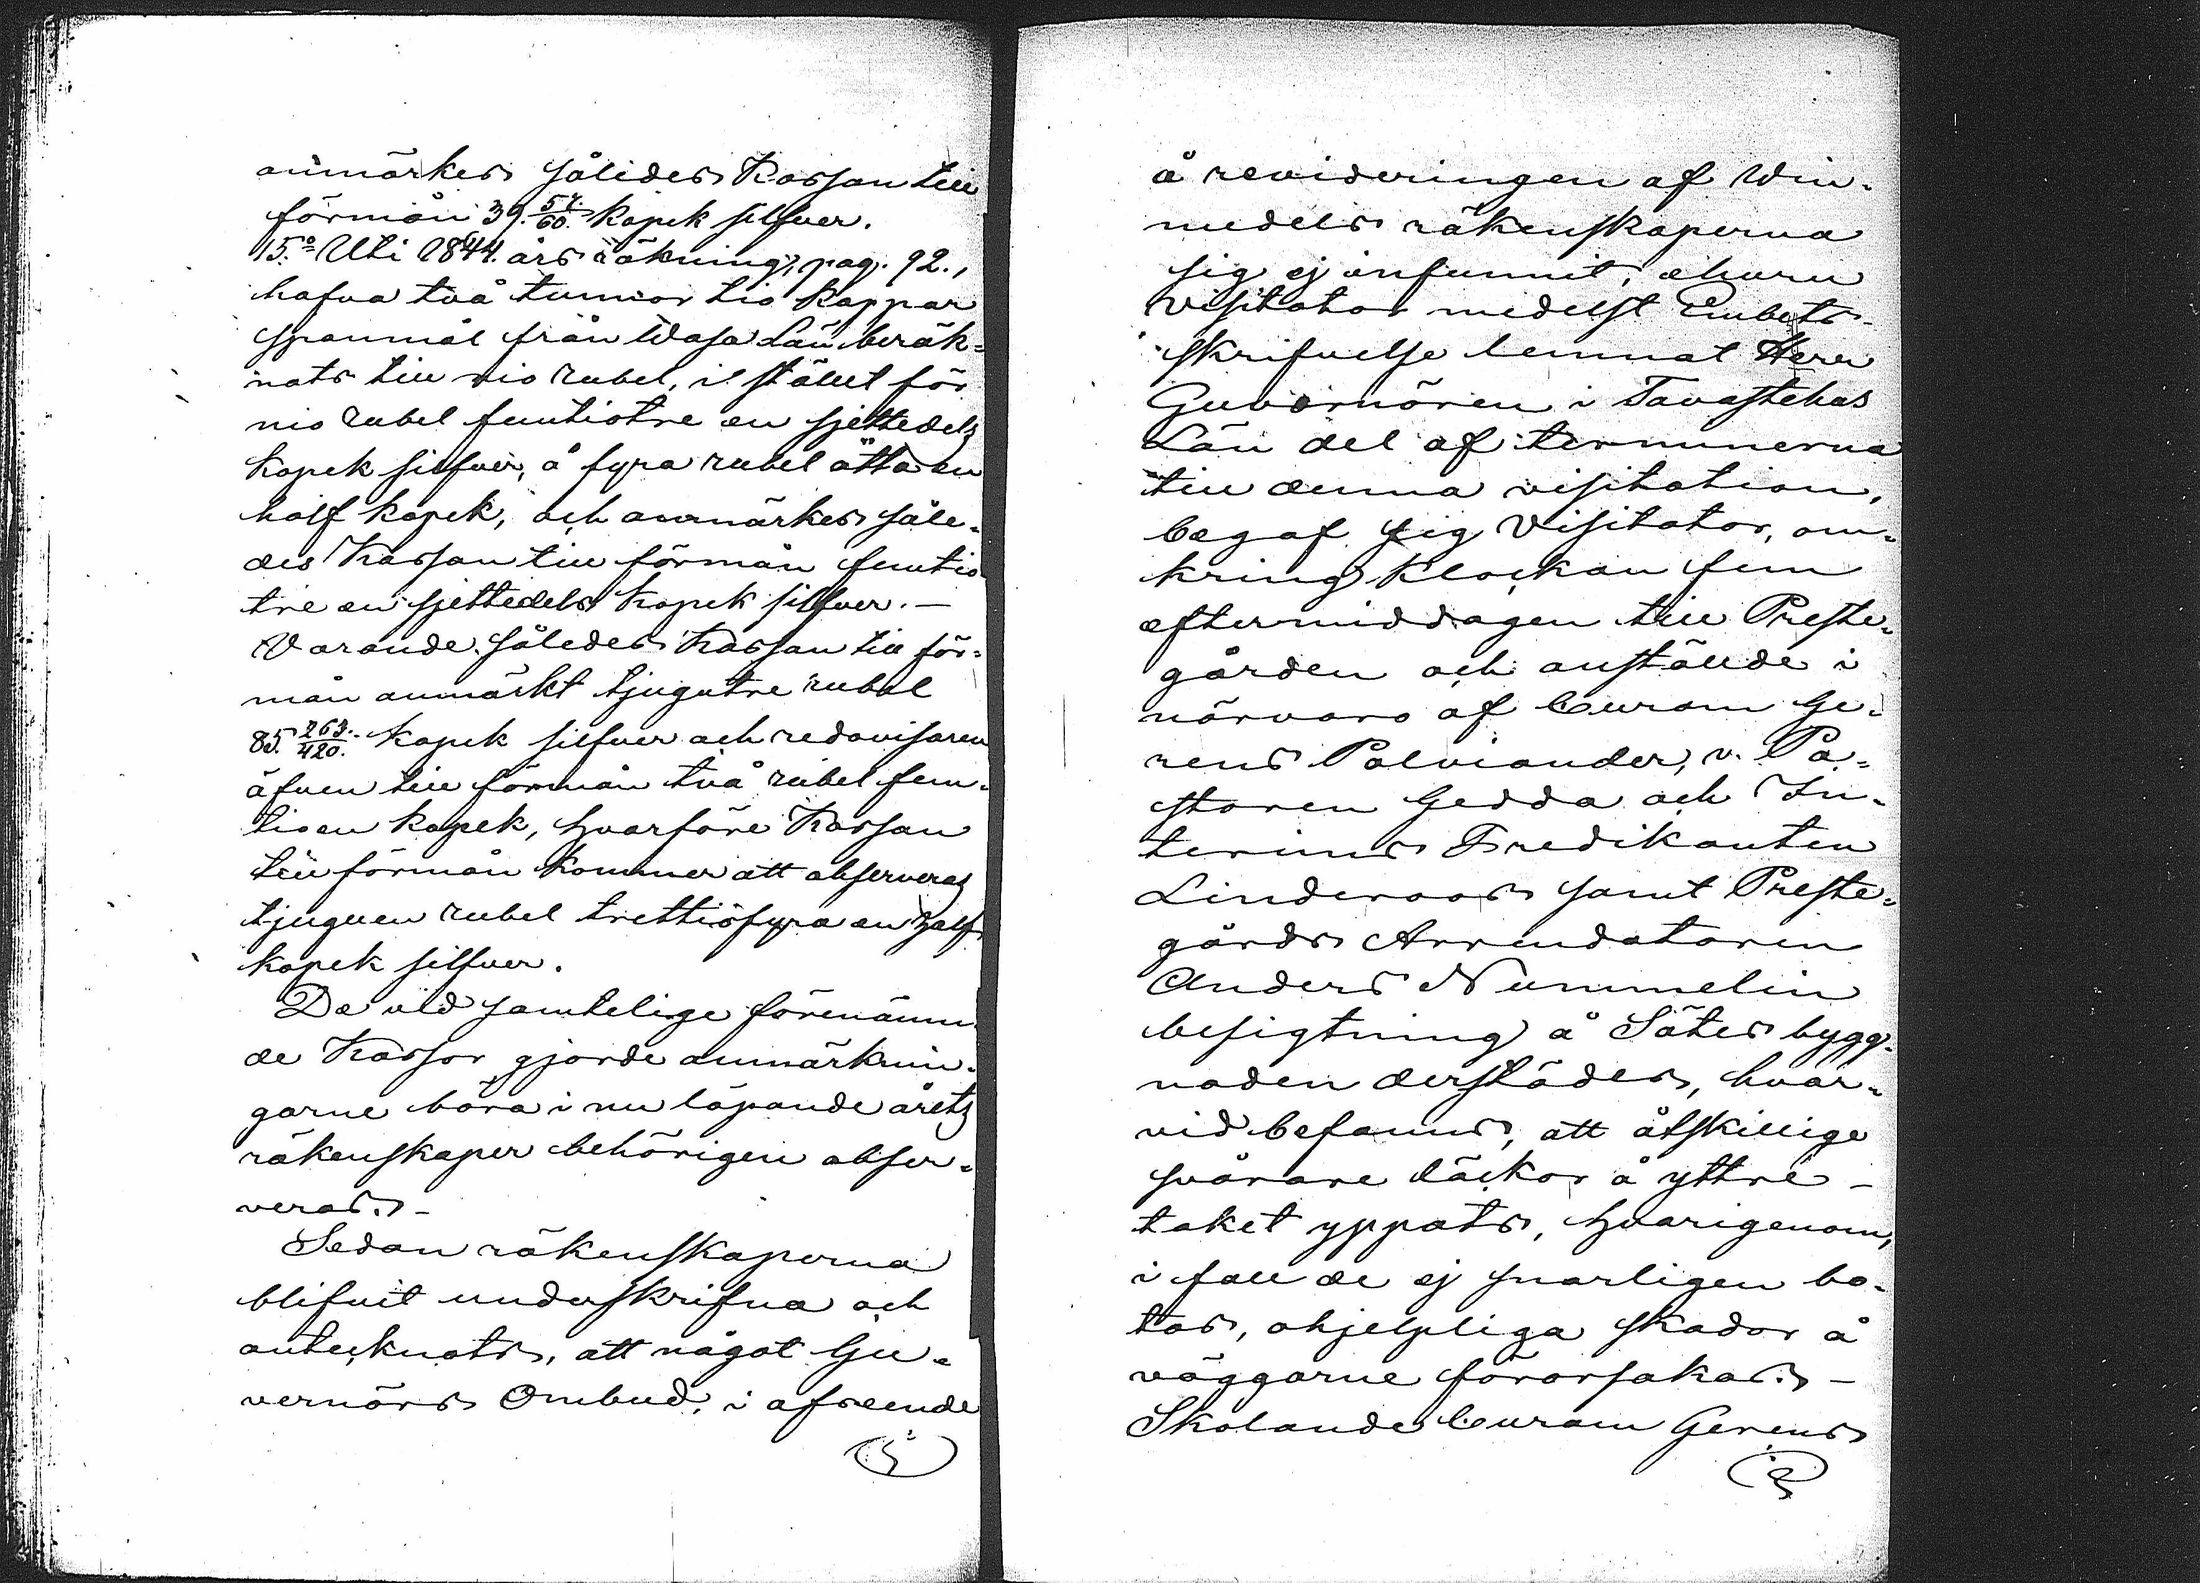 anmärkes således Kassan till
förmån 39. 57./60. kopek silfver.
15.o Uti 1844. års räkning, pag. 92.,
hafva två tunnor tio kappar
spanmål från Wasa Län beräk-
nats till nio rubel, i stället för
nio rubel femtiotre en sjettedels
kopek silfver, å fyra rubel åtta en
half kopek, och anmärkes såle-
des Kassan till förmån femtio-
tre en sjettedels kopek silfver. —
Varande således Kassan till för-
mån anmärkt tjugutre rubel
85. 263./420. kopek silfver och redovisaren
äfven till förmån två rubel fem-
tio en kopek, hvarföre Kassan
till förmån kommer att observeras
tjuguen rubel trettiofyra en half
kopek silfver.
De vid samtelige förenämn-
de Kassor gjorde anmärknin-
garne böra i nu löpande årets
räkenskaper behörigen obser-
veras. —
Sedan räkenskaperna
blifvit underskrifna och
antecknats, att något Gu-
vernörs Ombud, i afseende
å revideringen af Win-
medels räkenskaperna
sig ej infunnit, ehuru
Visitator medelst Embets-
skrifvelse lemnat Herr
Guvernören i Tavastehus
Län del af terminerna
till denna visitation,
begaf sig Visitator, om-
kring klockan fem
eftermiddagen till Preste-
gården och anställde i
närvaro af Curam Ge-
rens Palviander, v. Pa-
storen Gedda och In-
terims Predikanten
Linderoos samt Preste-
gårds Arrendatoren
Anders Nummelin
besigtning å Sätes bygg-
naden derstädes, hvar-
vid befanns, att åtskillige
svårare läckor å yttre -
taket yppats, hvarigenom,
i fall de ej snarligen bo-
tas, ohjelpliga skador å
väggarne förorsakas. —
Skolande Curam Gerens